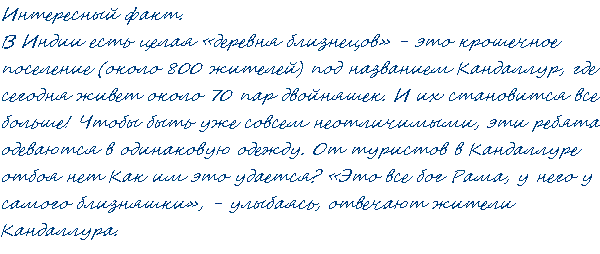 Интересный факт.
В Индии есть целая «деревня близнецов» - это крошечное
поселение (около 800 жителей) под названием Кандаллур, где
сегодня живет около 70 пар двойняшек. И их становится все
больше! Чтобы быть уже совсем неотличимыми, эти ребята
одеваются в одинаковую одежду. От туристов в Кандаллуре
отбоя нет Как им это удается? «Это все бог Рама, у него у
самого близняшки», - улыбаясь, отвечают жители
Кандаллура.